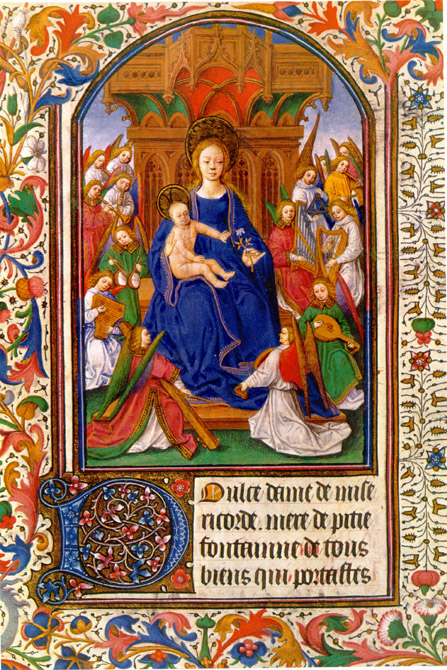 DOulce dame de mise
ricorde. mere de pitie
fontainne de tous
biens qui portastes